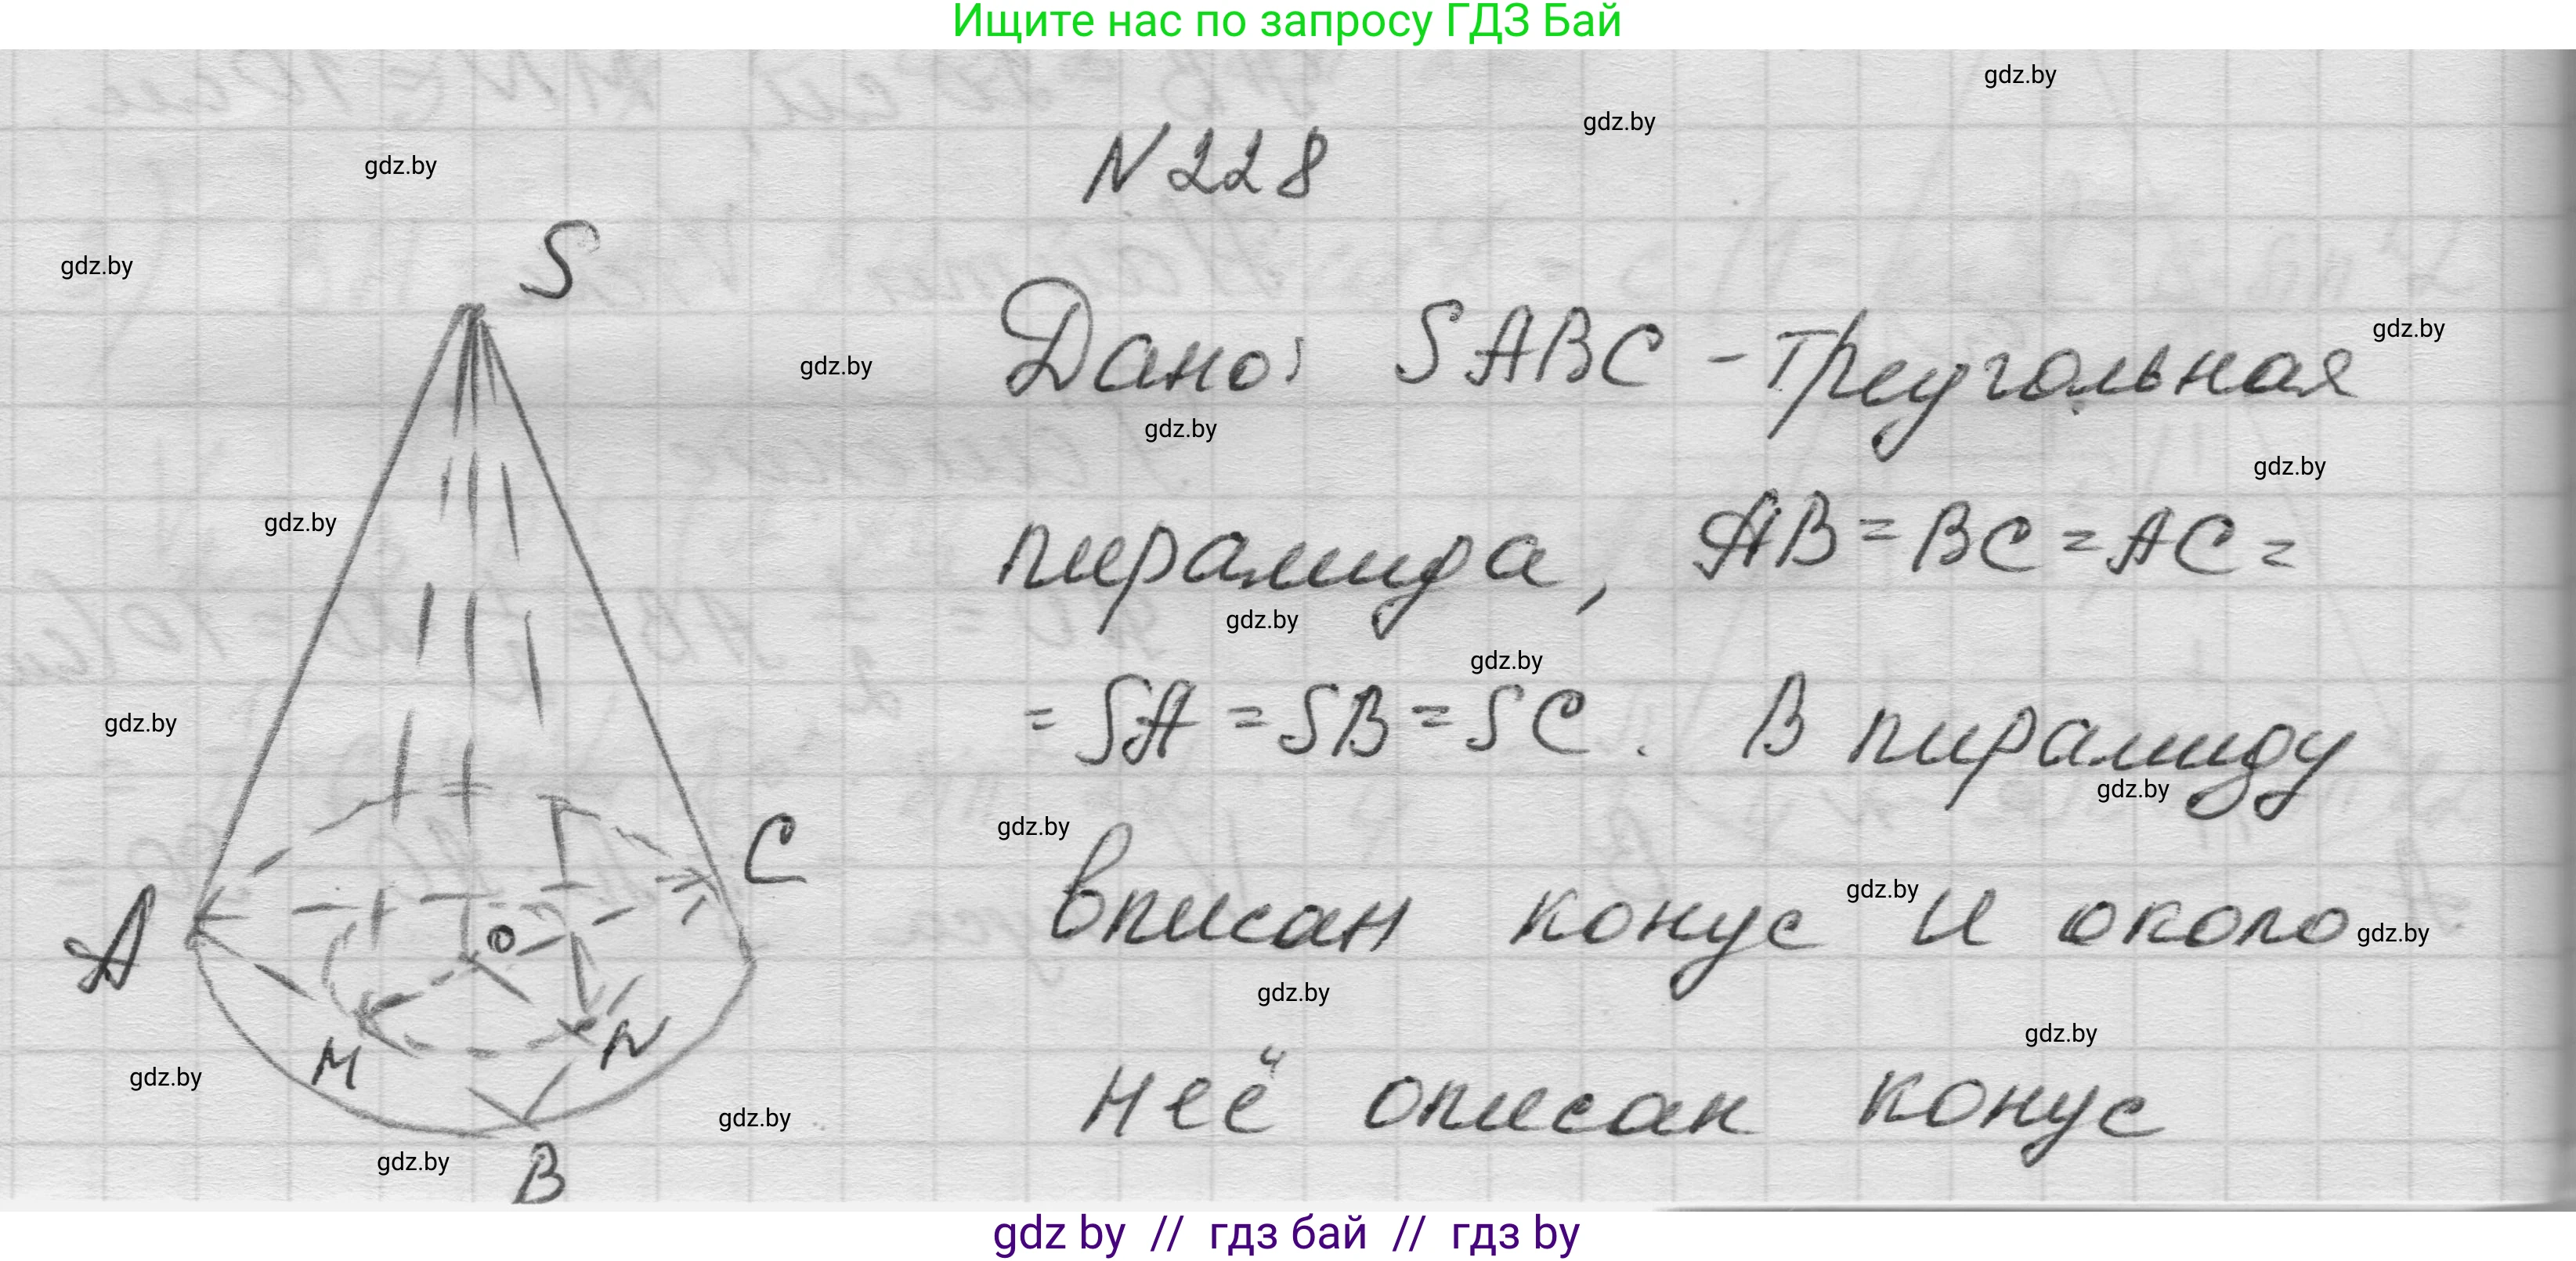 Ищите нас по запросу ГДЗ Бай
gdz.by
gdz.by
gdz.by
N 228
S
gdz.by
Дано: SABC - треугольная
gdz.by
gdz.by
gdz.by
gdz.by
gdz.by
пирамида, AB = BC = AC =
gdz.by
gdz.by
= SA = SB = SC. В пирамиду
gdz.by
gdz.by
gdz.by
C
A
O
gdz.by
вписан конус и около
gdz.by
gdz.by
gdz.by
M
N
неё описан конус
gdz.by
gdz.by
gdz.by
B
gdz by // гдз бай // гдз by